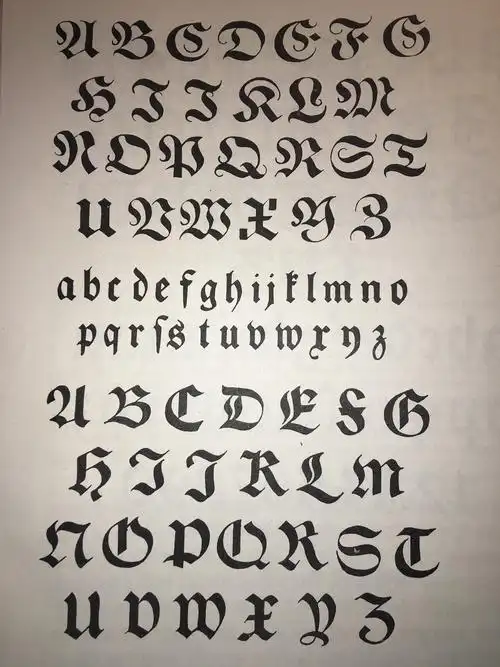 A B C D E F G
H I J K L M
N O P Q R S T
U V W X Y Z
a b c d e f g h i j k l m n o
p q r ſ s t u v w x y z
A B C D E F G
H I J K L M
N O P Q R S T
U V W X Y Z